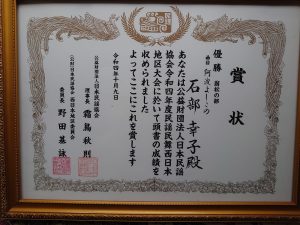 賞状
優勝
曲目 阿波よしこの
石部幸子殿
あなたは公益財団法人日本民謡
協会令和四年度民謡民舞西日本
地区大会に於いて頭書の成績を
収められました
よってここにこれを賞します
令和四年十月九日
公益財団法人日本民謡協会
理事長
秋則
委員長 野田基詠